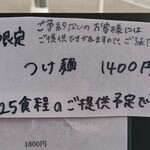 限定
ご予約なしのお客様には
ご提供できかねますので、ご了承
つけ麺 1400円
25食程のご提供予定で
1800円